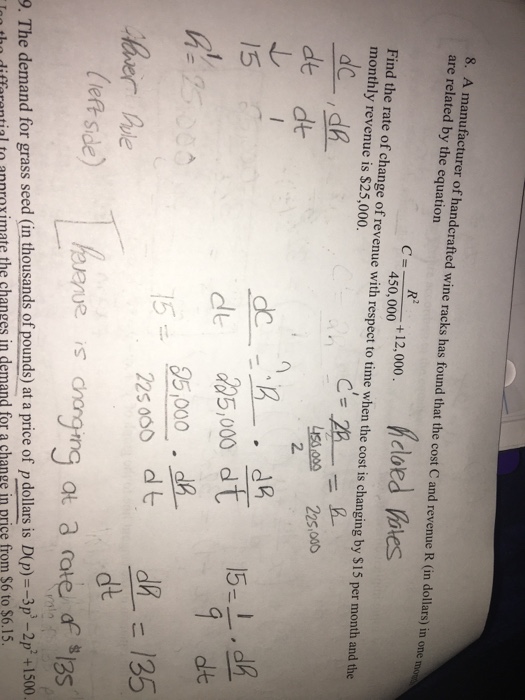 8. A manufacturer of handcrafted wine racks has found that the cost C and revenue R (in dollars) in one
are related by the equation
C = R² / 450,000 + 12,000. Related Rates
Find the rate of change of revenue with respect to time when the cost is changing by $15 per month and the
monthly revenue is $25,000.
C' = 2R / 450,000 = R / 225,000
2
dC/dt , dR/dt
↓
15
dC/dt = R / 225,000 · dR/dt
R = 25,000
15 = 25,000 / 225000 · dR/dt
15 = 1/9 · dR/dt
dR/dt = 135
Power Rule
(left side)
Revenue is changing at a rate of $135
9. The demand for grass seed (in thousands of pounds) at a price of p dollars is D(p) = -3p³ - 2p² + 1500.
the differential to approximate the changes in demand for a change in price from $6 to $6.15.